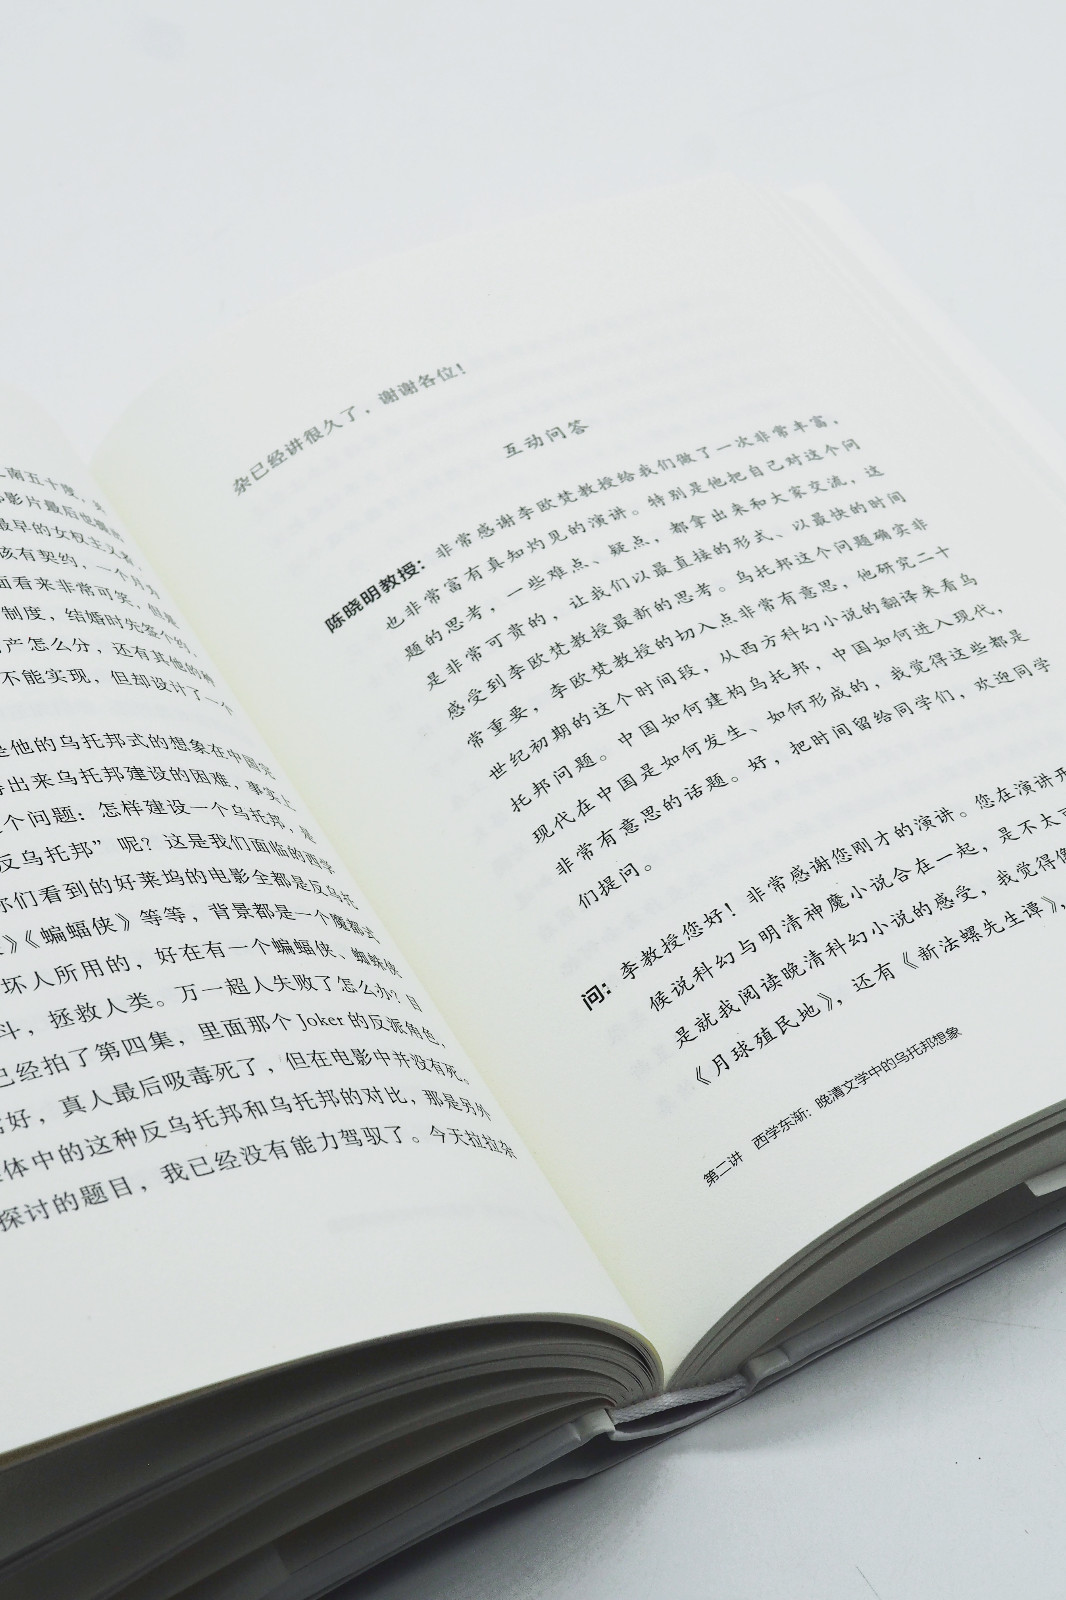 南五十度，
影片最后也
最早的女权主义者，
该有契约，一个月为
面看来非常可笑，但
制度，结婚时先签个约，
产怎么分，还有其他的种
不能实现，但却设计了一个
是他的乌托邦式的想象在中国
出来乌托邦建设的困难，事实上
个问题：怎样建设一个乌托邦，是
反乌托邦”呢？这是我们面临的西学
你们看到的好莱坞的电影全都是反乌托
》《蝙蝠侠》等等，背景都是一个魔都式
坏人所用的，好在有一个蝙蝠侠、蜘蛛侠
斗，拯救人类。万一超人失败了怎么办？目
已经拍了第四集，里面那个Joker的反派角色，
常好，真人最后吸毒死了，但在电影中并没有死。
体中的这种反乌托邦和乌托邦的对比，那是另外
探讨的题目，我已经没有能力驾驭了。今天拉拉杂
杂已经讲很久了，谢谢各位！
互动问答
陈晓明教授：非常感谢李欧梵教授给我们做了一次非常丰富，
也非常富有真知灼见的演讲。特别是他把自己对这个问
题的思考，一些难点、疑点，都拿出来和大家交流，这
是非常可贵的，让我们以最直接的形式、以最快的时间
感受到李欧梵教授最新的思考。乌托邦这个问题确实非
常重要，李欧梵教授的切入点非常有意思，他研究二十
世纪初期的这个时间段，从西方科幻小说的翻译来看乌
托邦问题。中国如何建构乌托邦，中国如何进入现代，
现代在中国是如何发生、如何形成的，我觉得这些都是
非常有意思的话题。好，把时间留给同学们，欢迎同学
们提问。
问：李教授您好！非常感谢您刚才的演讲。您在演讲开
候说科幻与明清神魔小说合在一起，是不太可
是就我阅读晚清科幻小说的感受，我觉得像
《月球殖民地》，还有《新法螺先生谭》，
第二讲 西学东渐：晚清文学中的乌托邦想象